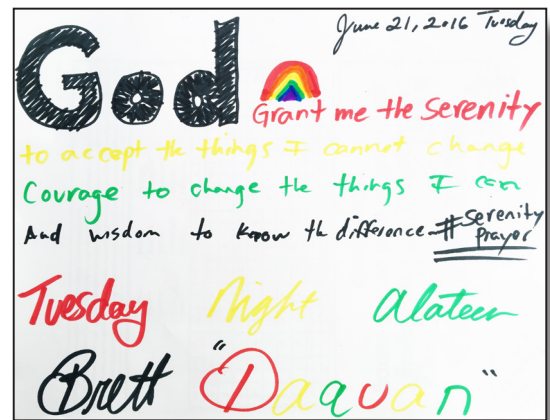 June 21, 2016 Tuesday
God Grant me the Serenity
to accept the things I cannot change
Courage to change the things I can
And wisdom to know the difference #Serenity Prayer
Tuesday Night Alateen
Brett "Daquan"